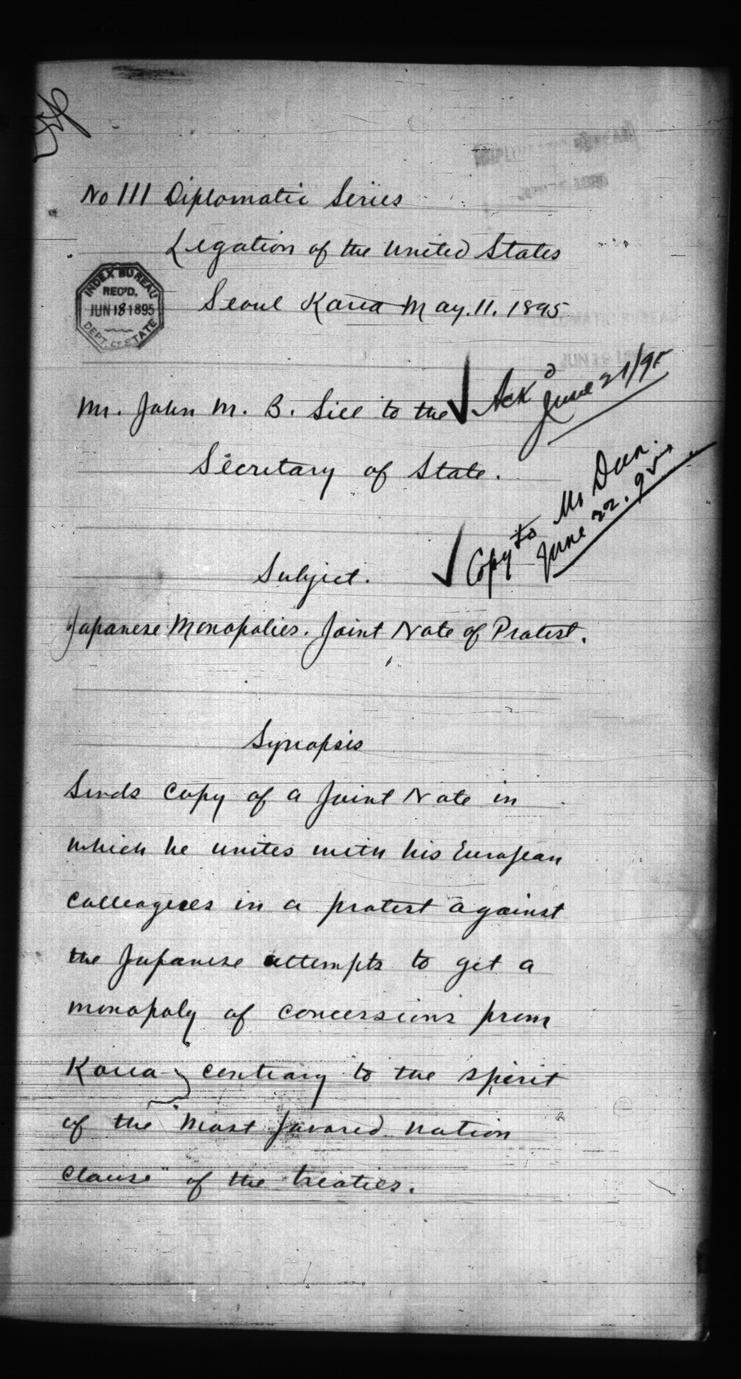 No 111 Diplomatic Series
Legation of the United States
Seoul Korea May. 11. 1895
INDEX BUREAU
REC'D.
JUN 18 1895
DEPT. OF STATE
Mr. John M. B. Sill to the
Secretary of State.
Ack'd
June 21/95
Copy to Mr Dun.
June 22. 95
Subject.
Japanese Monopolies. Joint Note of Protest.
Synopsis
Sends copy of a Joint Note in
which he unites with his European
colleagues in a protest against
the Japanese attempts to get a
monopoly of concessions from
Korea contrary to the spirit
of the "most favored nation
clause" of the treaties.